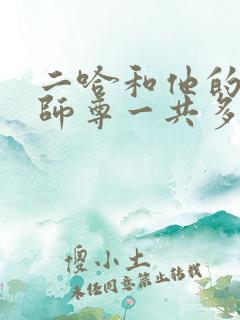 二哈和他的
師尊一共多
傻小土
未任同意禁止转载